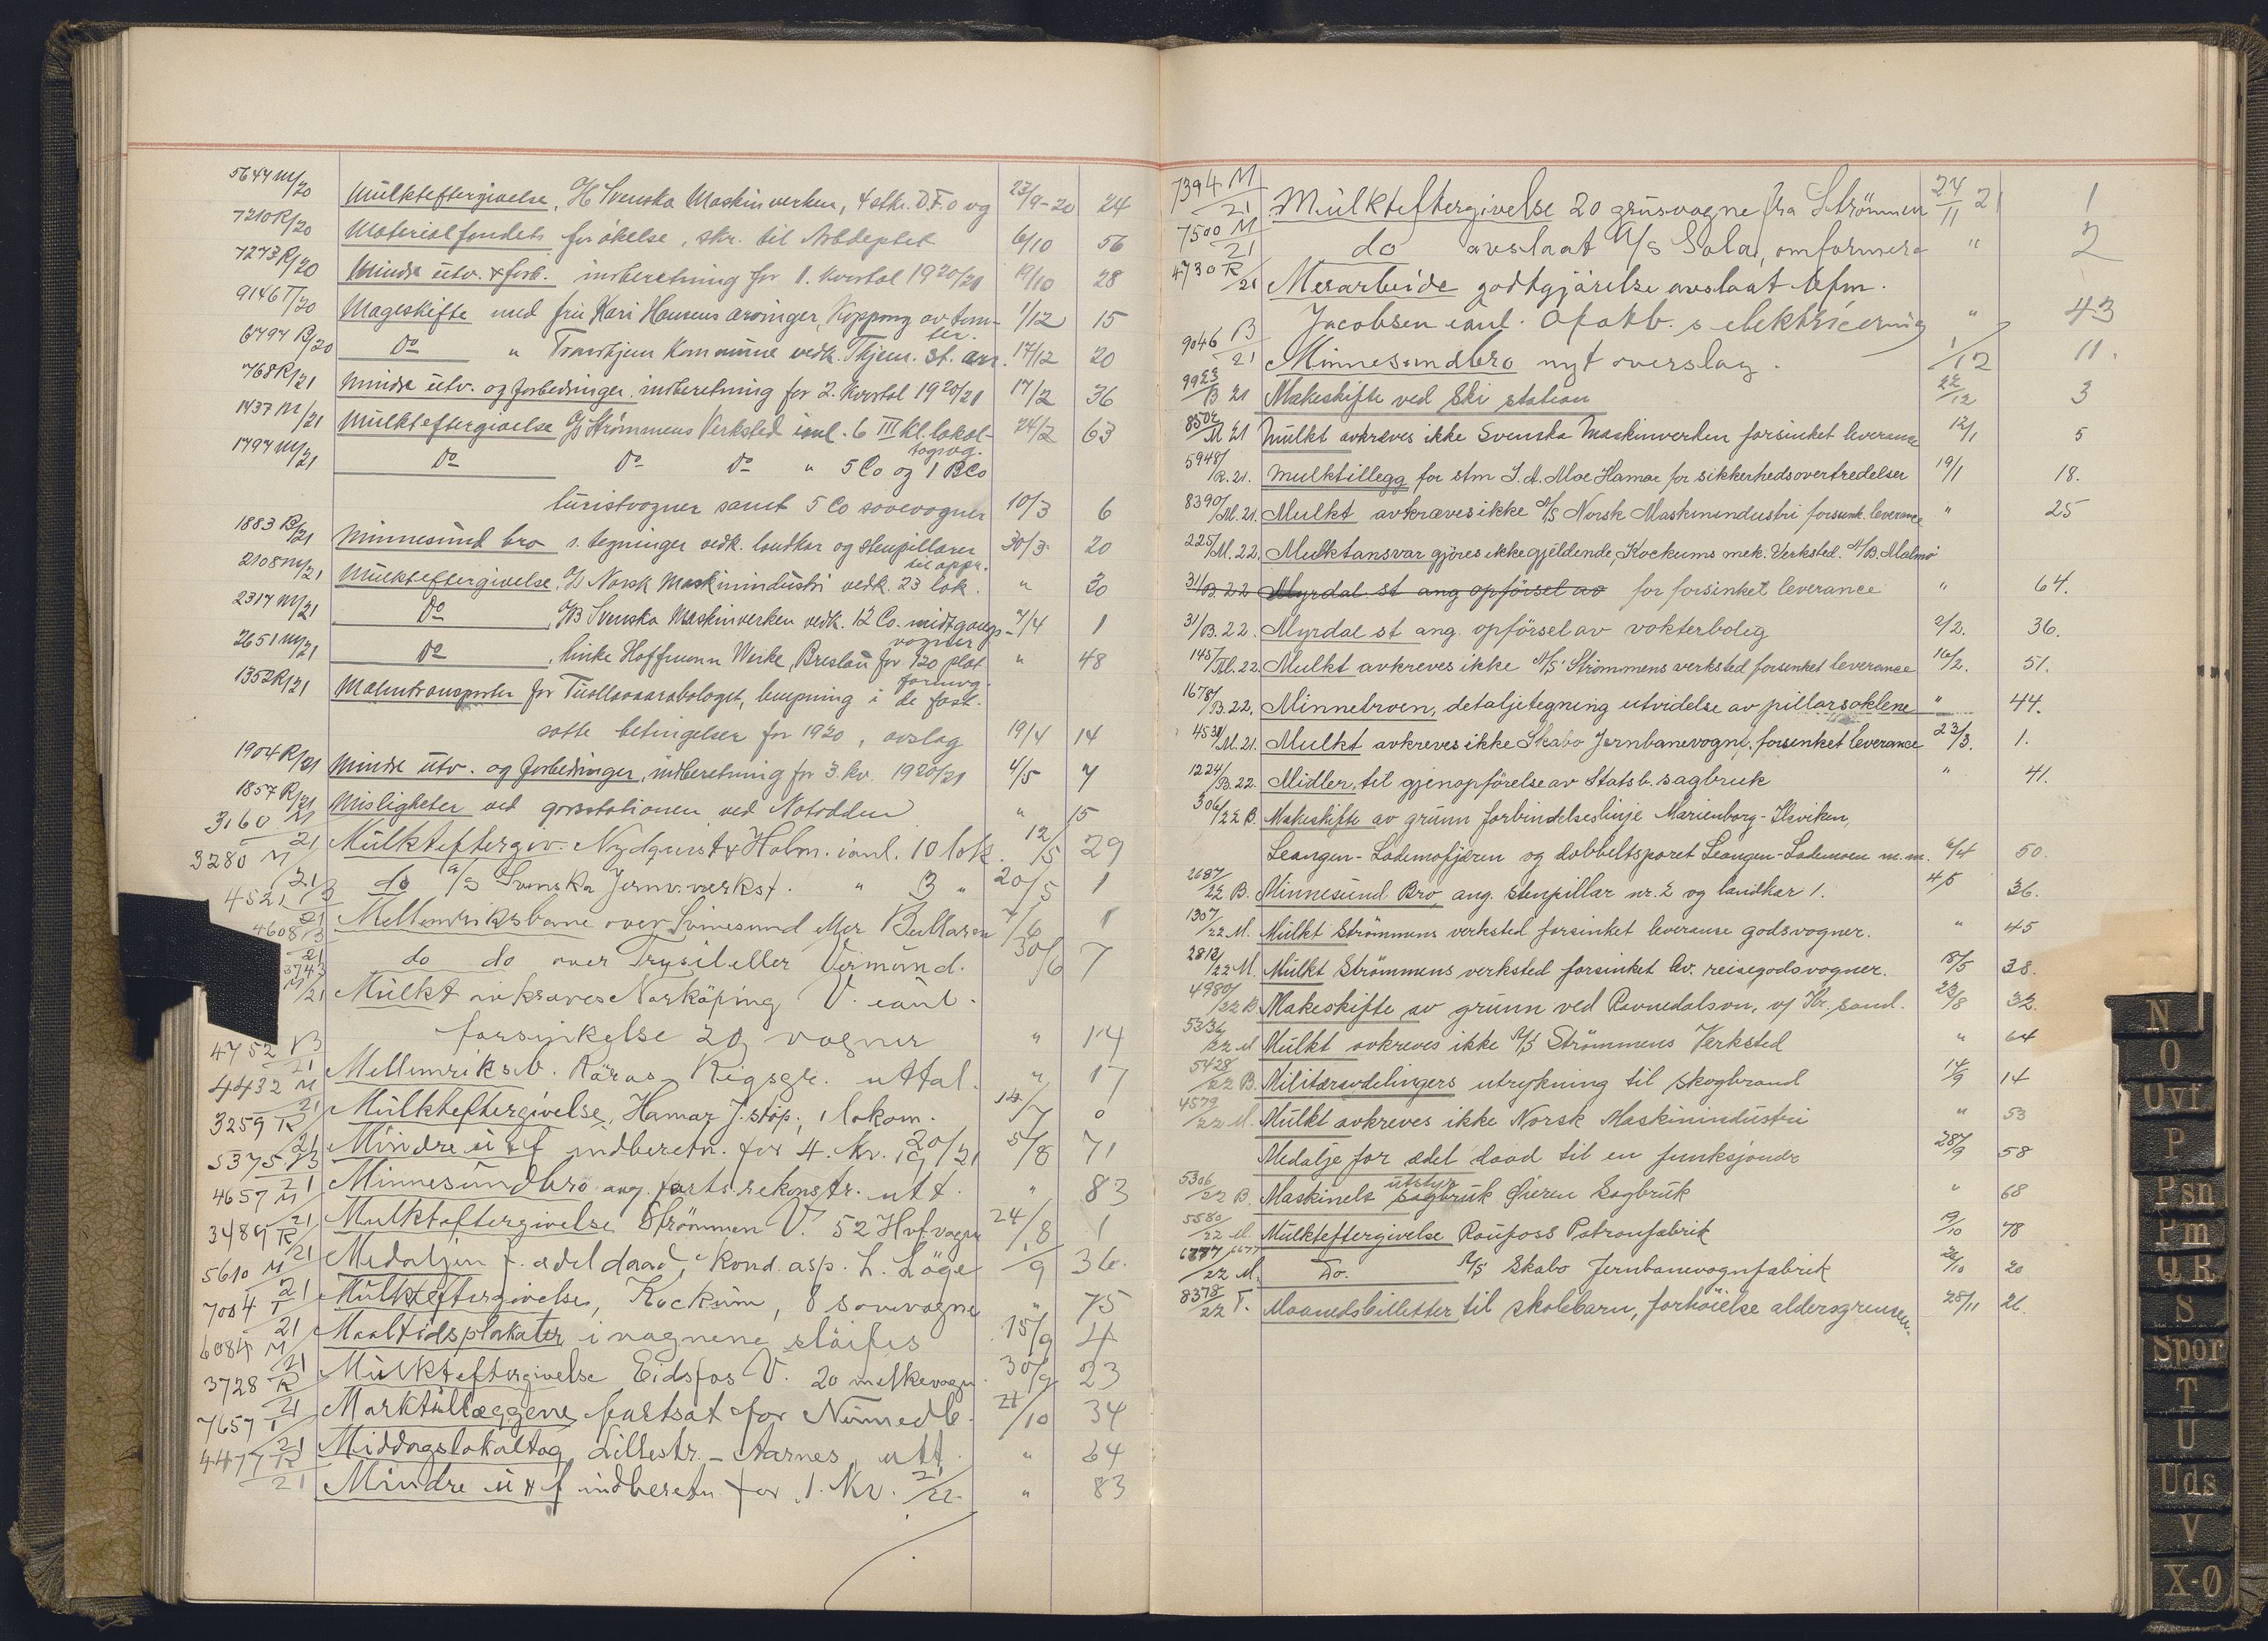 5647 M/20 Mulkteftergivelse, Svenska Maskinverken, 4 stk. D.F.o vg 23/9-20 24
7210 R/20 Materialfondets forökelse, skr. til Arbdeptet 6/10 56
7273 R/20 Mindre utv. & forb. indberetning for 1. kvartal 1920/21 19/10 28
9146 T/20 Mageskifte med fru Kari Hansens arvinger, Koppang av tom- 1/12 15
ter.
6797 B/20 Do " Trondhjem Kommune vedk. Thjem. st. arr. 17/12 20
768 R/21 Mindre utv. og forbedringer, indberetning for 2. kvartal 1920/21 17/2 36
1437 M/21 Mulkteftergivelse Strømmens Verksted i anl. 6 III kl. lokal- 24/2 63
togsvg.
1797 M/21 Do Do Do " 5 Co og 1 BCo
turistvogner samt 5 Co sovevogner 10/3 6
1883 B/21 Minnesund bro s. tegninger vedk. landkar og stenpillarer 30/3 20
til appr.
2108 M/21 Mulkteftergivelse, Norsk Maskinindustri vedk. 23 lok. " 30
2317 M/21 Do Svenska Maskinverken vedk. 12 Co. midtgangs- 7/4 1
vogner
2651 M/21 Do , Linke Hoffmann Werke, Breslau for 120 plat- " 48
formvg.
1352 R/21 Malmtransporter for lempning i de fast-
satte betingelser for 1920, avslag 19/4 14
1904 R/21 Mindre utv. og forbedringer, indberetning for 3. kv. 1920/21 4/5 7
1857 R/21 Misligheter ved godsstationen ved Notodden " 15
3160 M/21 Mulkteftergiv. Nydquist & Holm. i anl. 10 lok. 12/5 29
3280 M/21 do A/S Svenska Jernv. verkst. " 3 " 20/5 1
4521 B/21 Mellemriksbane over Svinesund eller Bullaren 7/6 1
4608 B/21 do do over Trysil eller Vermund. 30/6 7
3743 M/21 Mulkt avkræves Norköping V. i anl.
forsinkelse 20 vogner " 14
4752 B/21 Mellemriksb. Röros Riksgr. uttal. " 17
4432 M/21 Mulkteftergivelse, Hamar J. støp., 1 lokom. /7 0
3259 R/21 Mindre u & f indberetn. for 4. kv. 1920/21 5/8 71
5375 B/21 Minnesundbro ang. forts. rekonstr. utt. " 83
4657 M/21 Mulkteftergivelse Strömmen V. 52 Hvf vogne 24/8 1
3489 R/21 Medaljen f. ædel daad, Kond. asp. L. Löge /9 36.
5610 M/21 Mulkteftergivelse, Kockum, 8 sovevogne " 75
7004 T/21 Maaltidsplakater i vognene slöifes 15/9 4
6084 M/21 Mulkteftergivelse Eidsfos V. 20 melkevogn. 30/9 23
3728 R/21 Marktillæggene fartsat for Numedb. 21/10 34
7657 T/21 Middagslokaltog Lillestr. - Aarnes, utt. " 64
4477 R/21 Mindre u & f indberetn. for 1. Kv. 21/22. " 83
7394 M/21 Mulkteftergivelse 20 grusvogne fra Strömmen 24/11 21 1
7500 M/21 do avslaat A/S Sola, omformere " 2
4730 R/21 Merarbeide godtgjörelse avslaat Bfm.
Jacobsen i anl. Ofotb. s elektricering " 43
9046 B/21 Minnesundbro nyt overslag. 1/12 11.
9923/B 21 Makeskifte ved Ski station 22/12 3
8502/M 21 Mulkt avkreves ikke Svenska Maskinverken forsinket leveranse 12/1 5
5948/R. 21. Mulktillegg for stm J. A. Moe Hamar for sikkerhedsovertredelser 19/1 18.
8390/M. 21. Mulkt avkræves ikke A/S Norsk Maskinindustri forsink. leverance " 25
225/M. 22. Mulktansvar gjöres ikke gjeldende, Kockums mek. Verksted. A/B. Malmö
31/B. 22 Myrdal st ang opförsel av for forsinket leverance " 64.
31/B. 22. Myrdal st ang. opförsel av vokterbolig 2/2. 36.
145/M. 22. Mulkt avkreves ikke A/S Strömmens verksted forsinket leverance 16/2. 51.
1678/B. 22. Minnebroen, detaljetegning utvidelse av pillarsoklene " 44.
4531/M. 21. Mulkt avkreves ikke Skabo Jernbanevogn. forsinket leverance 23/3. 1.
1224/B. 22. Midler, til gjenopförelse av Statsb. sagbruk " 41.
306/22 B. Makeskifte av grunn forbindelseslinje Marienborg - Ilsviken,
Leangen - Lademofjæren og dobbeltsporet Leangen - Lademoen m.m. 6/4 50.
2687/22 B. Minnesund Bro, ang. stenpillar nr. 2 og landkar 1. 4/5 36.
1307/22 M. Mulkt Strömmens verksted forsinket leveranse godsvogner. " 45
2812/22 M. Mulkt Strömmens verksted forsinket lev. reisegodsvogner. 18/5 38.
4980/22 B Makeskifte av grunn ved Ravnedalsvn. v/ Kr.sand. 23/8 32.
5336/22 M Mulkt avkreves ikke A/S Strömmens Verksted " 64
5428/22 B. Militæravdelingers utrykning til skogbrand 14/9 14
4579/22 M. Mulkt avkreves ikke Norsk Maskinindustri " 53
Medalje for ædel daad til en funksjonær 28/9 58
utstyr
5306/22 B. Maskinelt sagbruk Øieren Sagbruk " 68
5580/22 M. Mulkteftergivelse Raufoss Patronfabrik 19/10 78
6677/22 M. Do. A/S Skabo Jernbanevognfabrik 26/10 20
8378/22 T. Maanedsbilletter til skolebarn, forhöielse aldersgrensen. 25/11 26.
N
O
Ovf
P
Psn
Pm
Q.R.
S
Spor
T
U
Uds
V
X-Ø